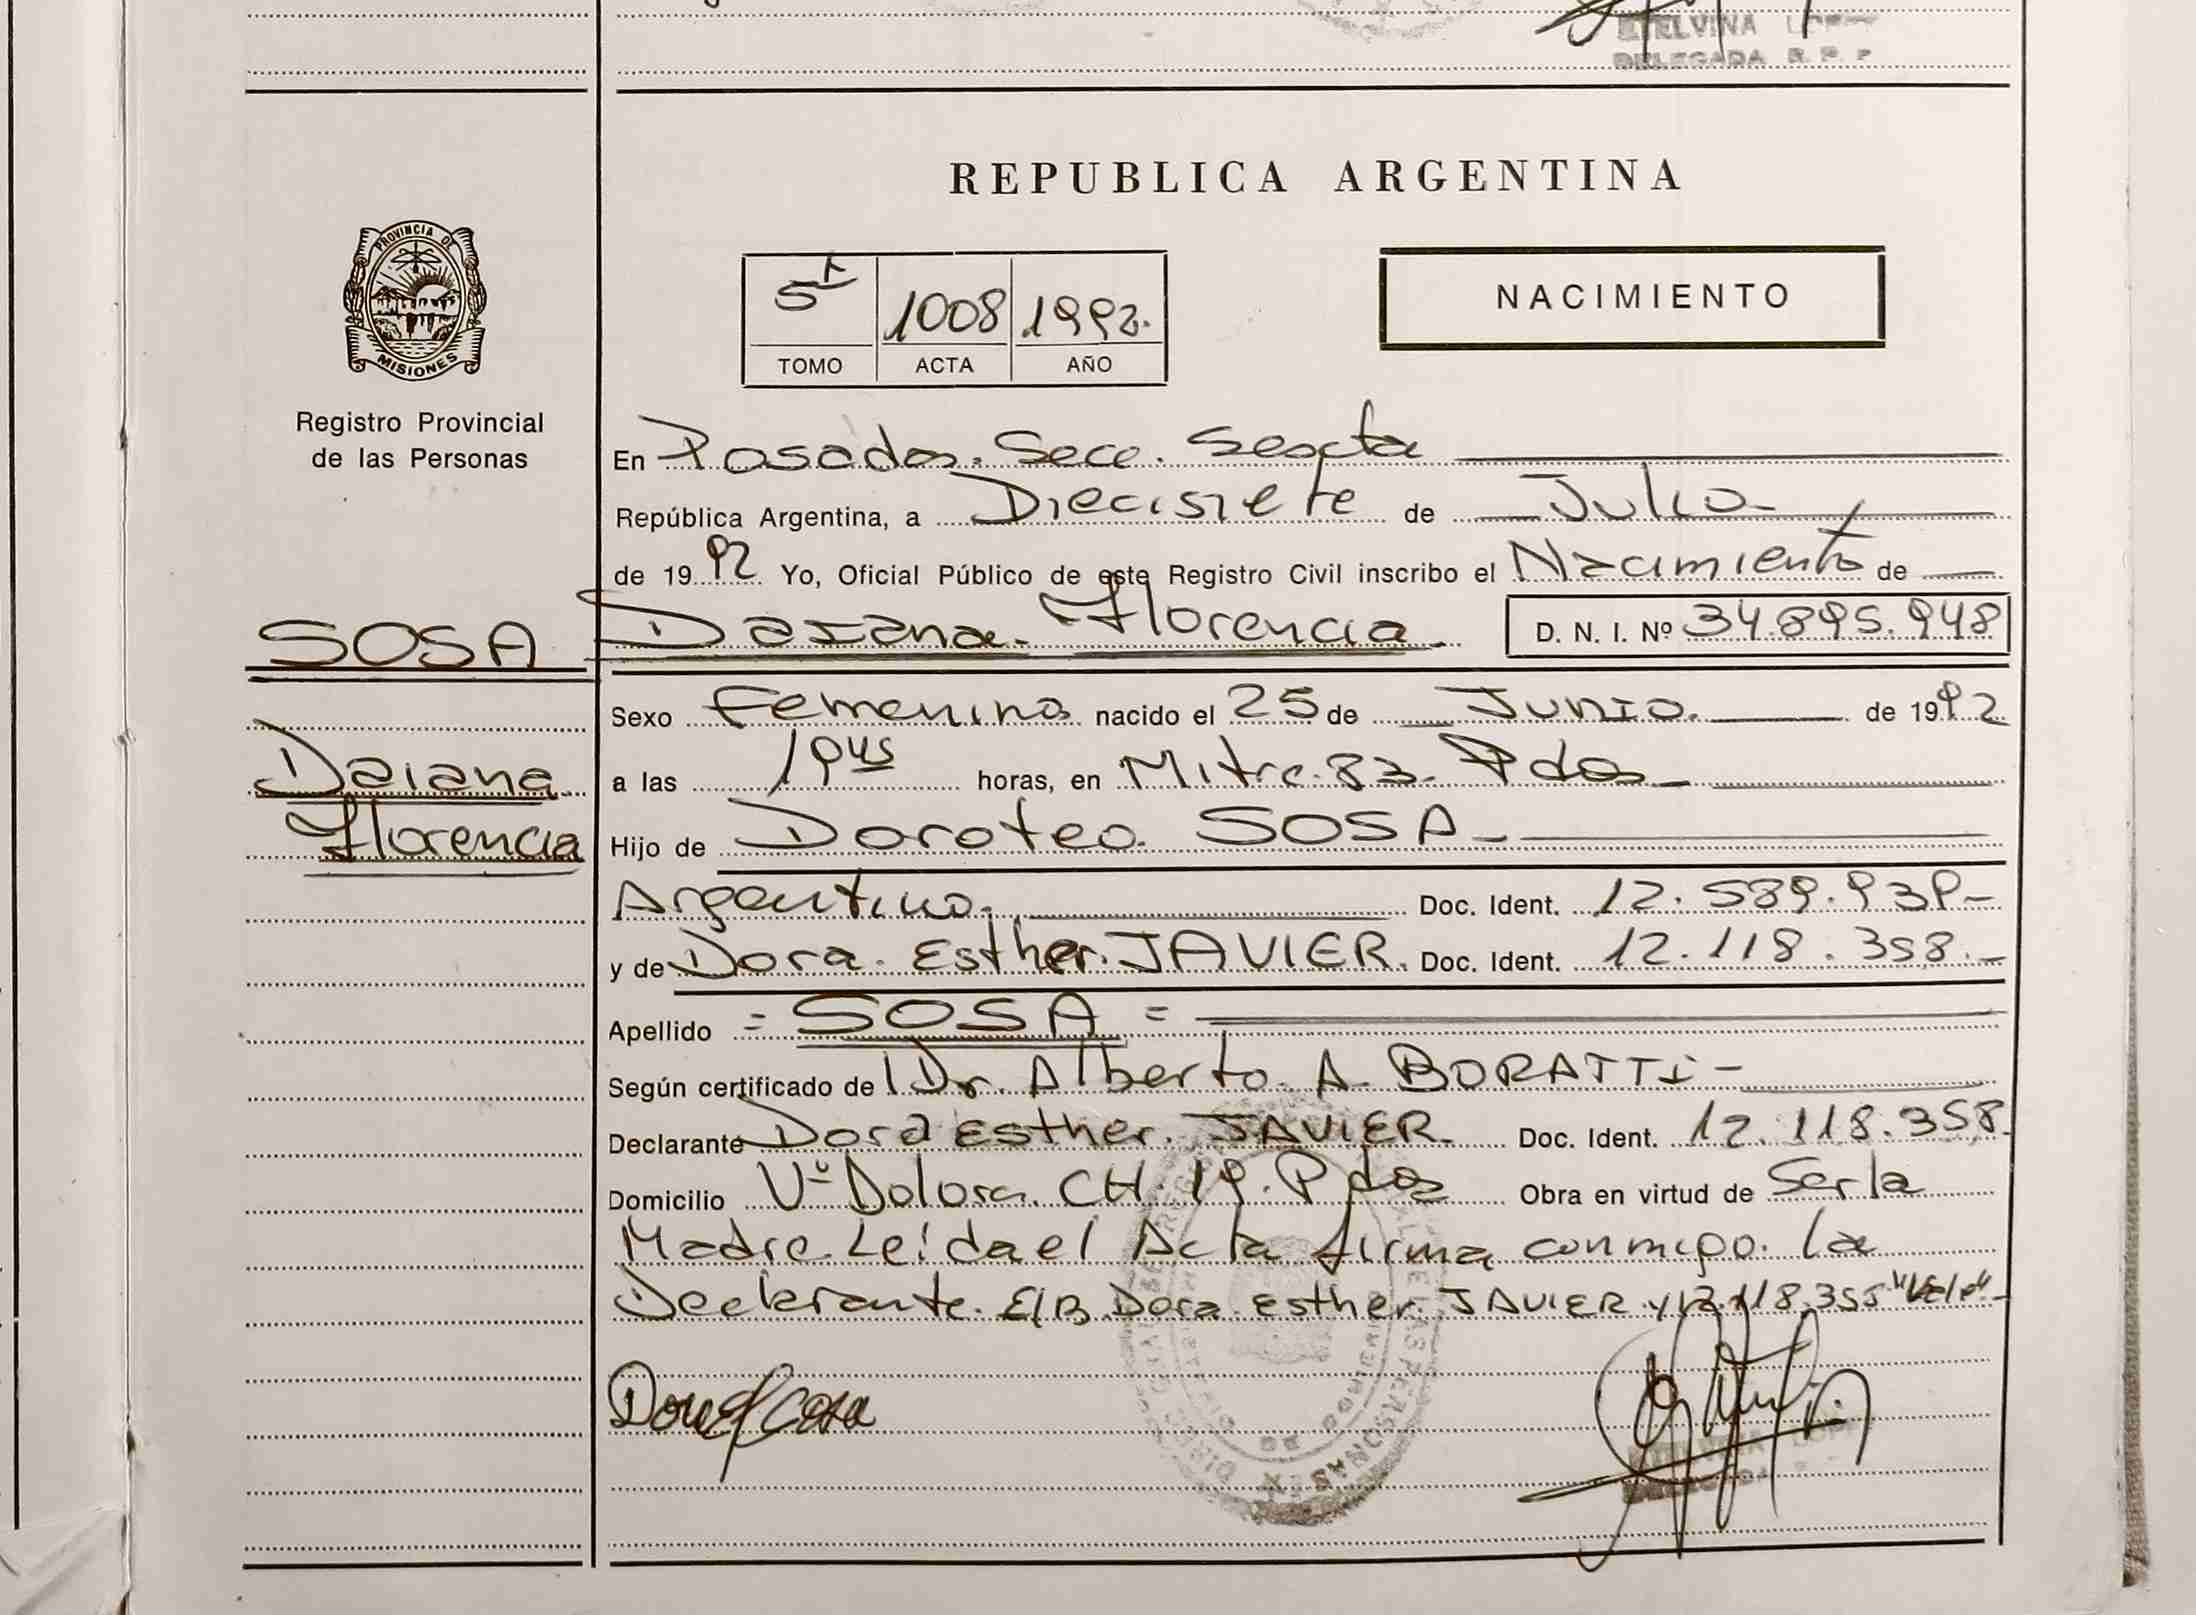 ETELVINA
DELEGADA R. P. P
REPUBLICA ARGENTINA
PROVINCIA DE
MISIONES
Registro Provincial
de las Personas
5
1008
1992.
TOMO
ACTA
AÑO
NACIMIENTO
En Posadas. Secc. Sexta
República Argentina, a Diecisiete de Julio
de 1992 Yo, Oficial Público de este Registro Civil inscribo el Nacimiento de
SOSA
Daiana Florencia
D. N. I. Nº 34.895.948
Sexo Femenino nacido el 25 de Junio. de 1992
Daiana
Florencia
a las 19 horas, en Mitre. 83. Pdas
Hijo de Doroteo SOSA
Argentino. Doc. Ident. 12.589.939
y de Dora. Esther. JAVIER. Doc. Ident. 12.118.358.
Apellido = SOSA =
Según certificado de Dr. Alberto. A. BORATTI
Declarante Dora Esther. JAVIER. Doc. Ident. 12.118.358.
Domicilio Vª Dolores. CH. 19. Pdas Obra en virtud de Ser la
Madre Leida el Acta firma conmigo. la
Declarante. E/B. Dora Esther. JAVIER y 12.118.358 "Vale"